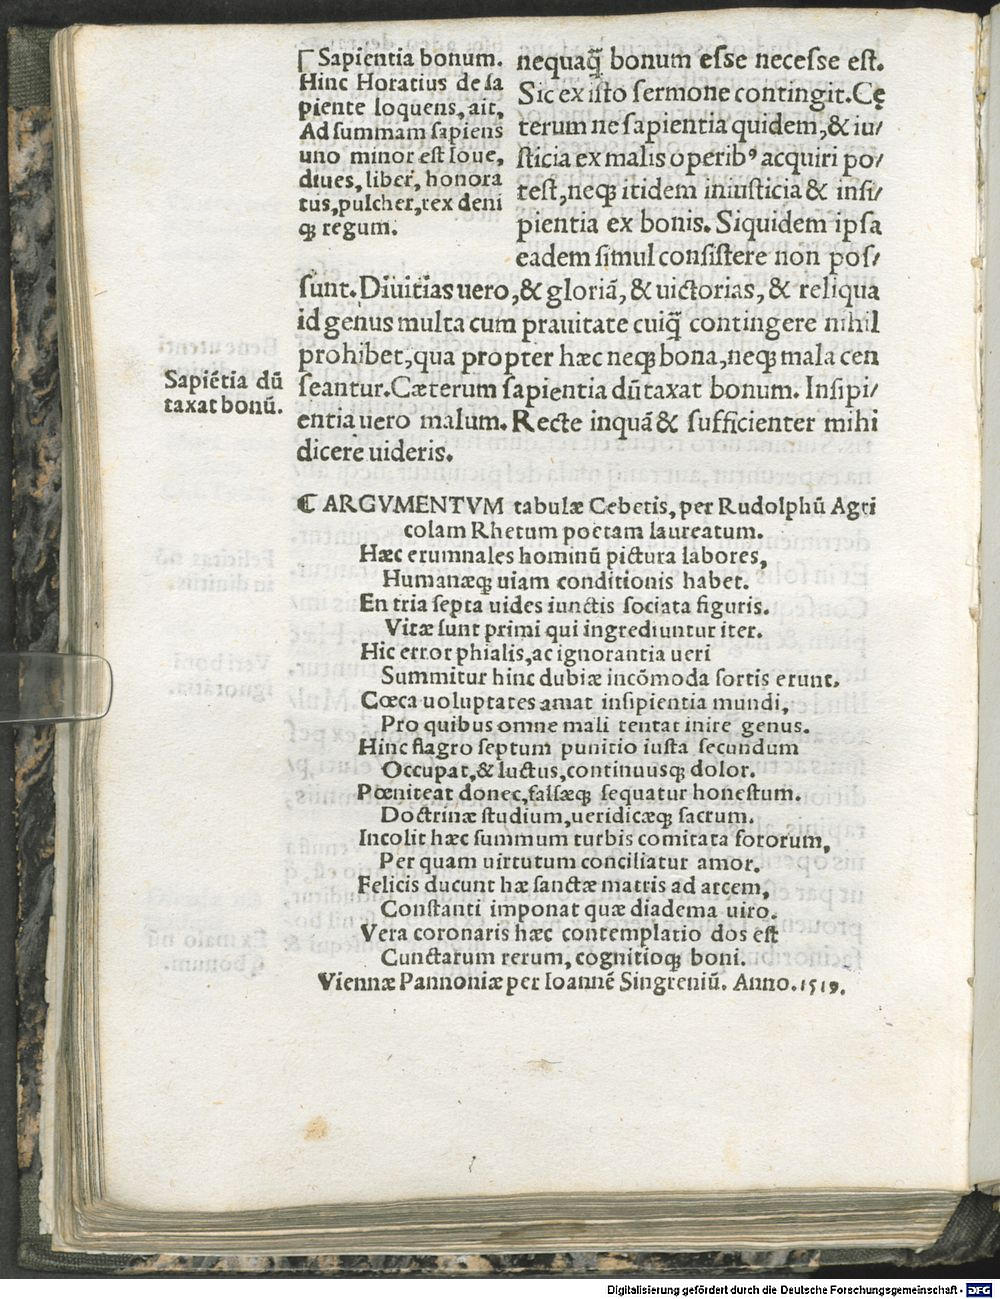 Sapientia bonum.
Hinc Horatius de sa
piente loquens, ait,
Ad summam sapiens
uno minor est Ioue,
diues, liber, honora
tus, pulcher, rex deni
q̃ regum.
nequaq̃ bonum esse necesse est.
Sic ex isto sermone contingit. Cę
terum ne sapientia quidem, & iu/
sticia ex malis operib⁹ acquiri po/
test, neq̃ itidem iniusticia & insi/
pientia ex bonis. Siquidem ipsa
eadem simul consistere non pos/
sunt. Diuitias uero, & gloriã, & uictorias, & reliqua
id genus multa cum prauitate cuiq̃ contingere nihil
prohibet, qua propter hæc neq̃ bona, neq̃ mala cen
seantur. Cæterum sapientia dũtaxat bonum. Insipi/
entia uero malum. Recte inquã & sufficienter mihi
dicere uideris.
Sapiẽtia dũ
taxat bonũ.
ARGVMENTVM tabulæ Cebetis, per Rudolphũ Agri
colam Rhetum poetam laureatum.
Hæc erumnales hominũ pictura labores,
Humanæq̃ uiam conditionis habet.
En tria septa uides iunctis sociata figuris.
Vitæ sunt primi qui ingrediuntur iter.
Hic error phialis, ac ignorantia ueri
Summitur hinc dubiæ incõmoda sortis erunt.
Cœca uoluptates amat insipientia mundi,
Pro quibus omne mali tentat inire genus.
Hinc flagro septum punitio iusta secundum
Occupat, & luctus, continuusq̃ dolor.
Pœniteat donec, falsæq̃ sequatur honestum.
Doctrinæ studium, ueridicæq̃ sacrum.
Incolit hæc summum turbis comitata sororum,
Per quam uirtutum conciliatur amor.
Felicis ducunt hæ sanctæ matris ad arcem,
Constanti imponat quæ diadema uiro.
Vera coronaris hæc contemplatio dos est
Cunctarum rerum, cognitioq̃ boni.
Viennæ Pannoniæ per Ioannẽ Singreniũ. Anno. 1519.
Digitalisierung gefördert durch die Deutsche Forschungsgemeinschaft - DFG